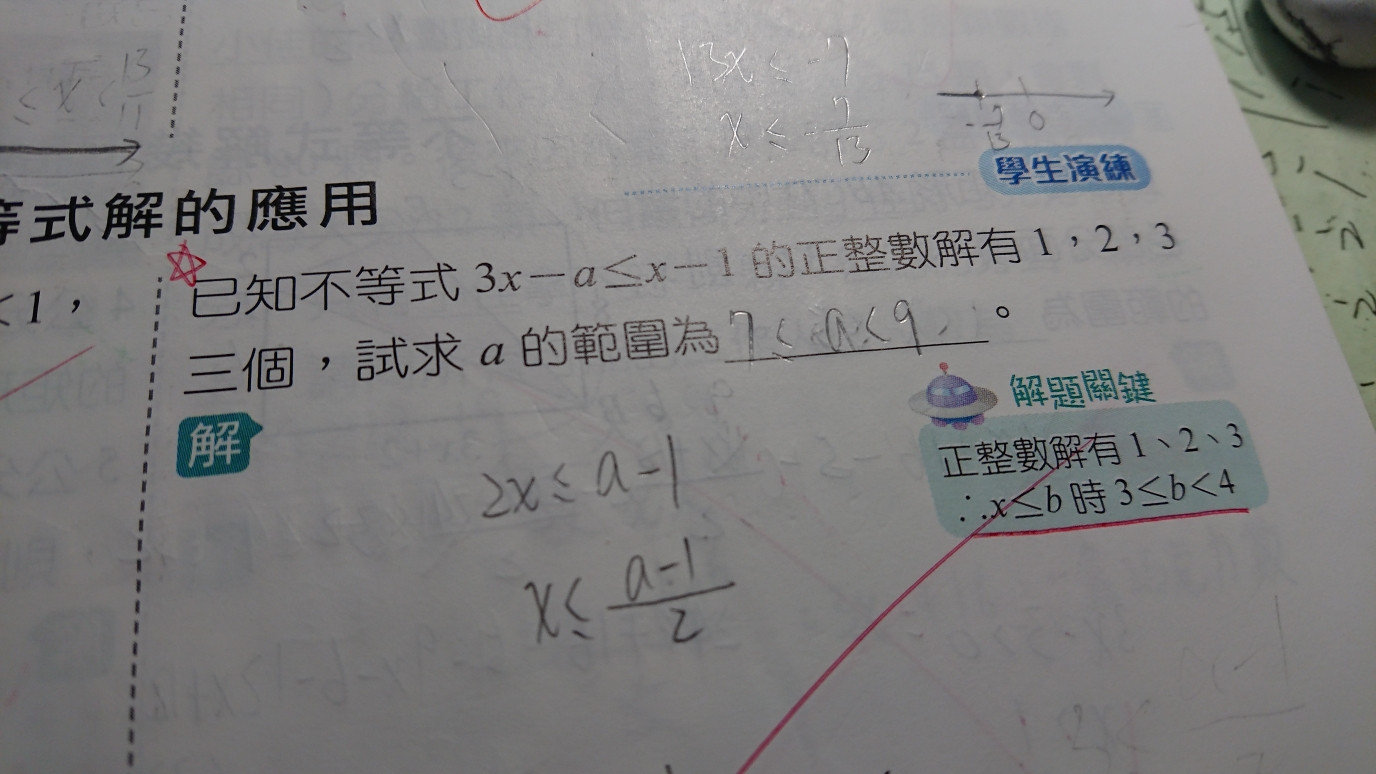 13x ≤ -7
x ≤ -7/13
-7/13 0
≤ x < 13/11
學生演練
等式解的應用
<1，
已知不等式 3x－a≤x－1 的正整數解有 1，2，3
三個，試求 a 的範圍為 7 ≤ a < 9 。
解
解題關鍵
正整數解有 1、2、3
∴x≤b 時 3≤b<4
2x ≤ a-1
x ≤ a-1/2